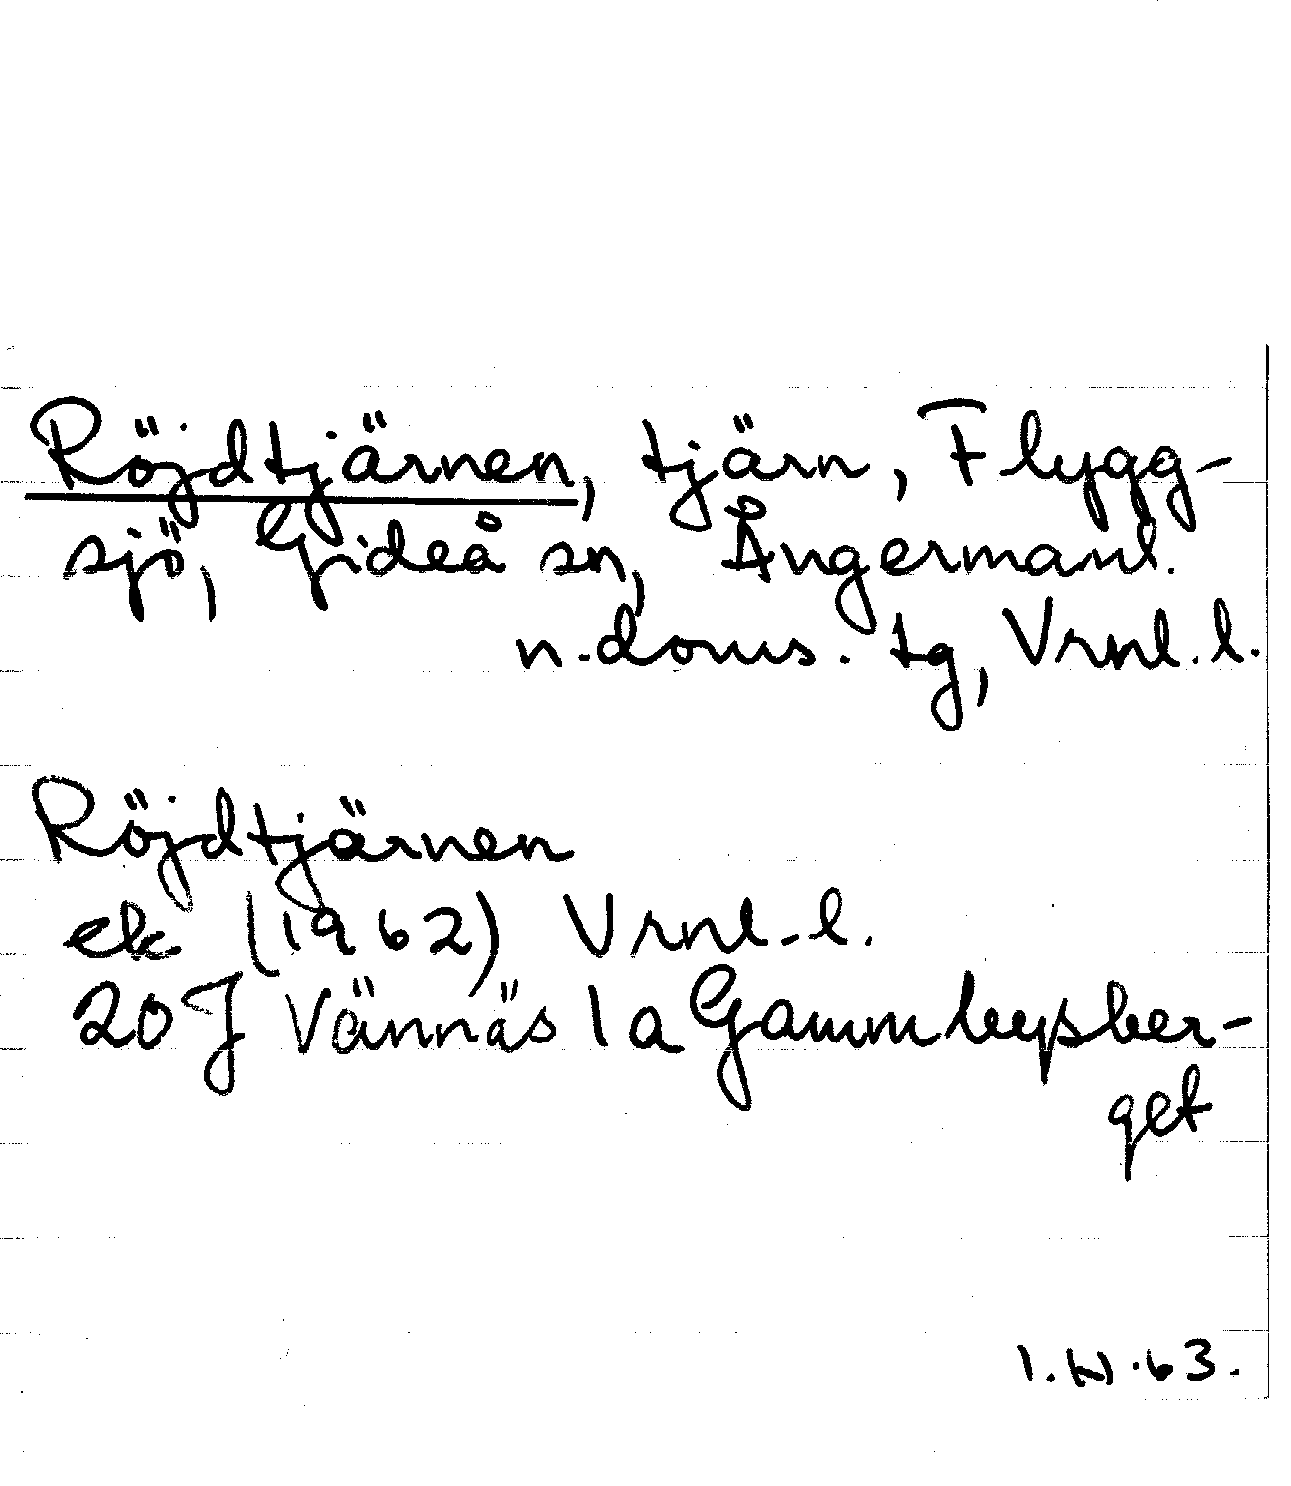 Röjdtjärnen, tjärn, Flygg-
sjö, Gideå sn, Ångermanl.
n. doms. tg, Vrnl. l.
Röjdtjärnen
ek (1962) Vrnl. l.
20 J Vännäs 1 a Gammbysber-
get
I.W.63.